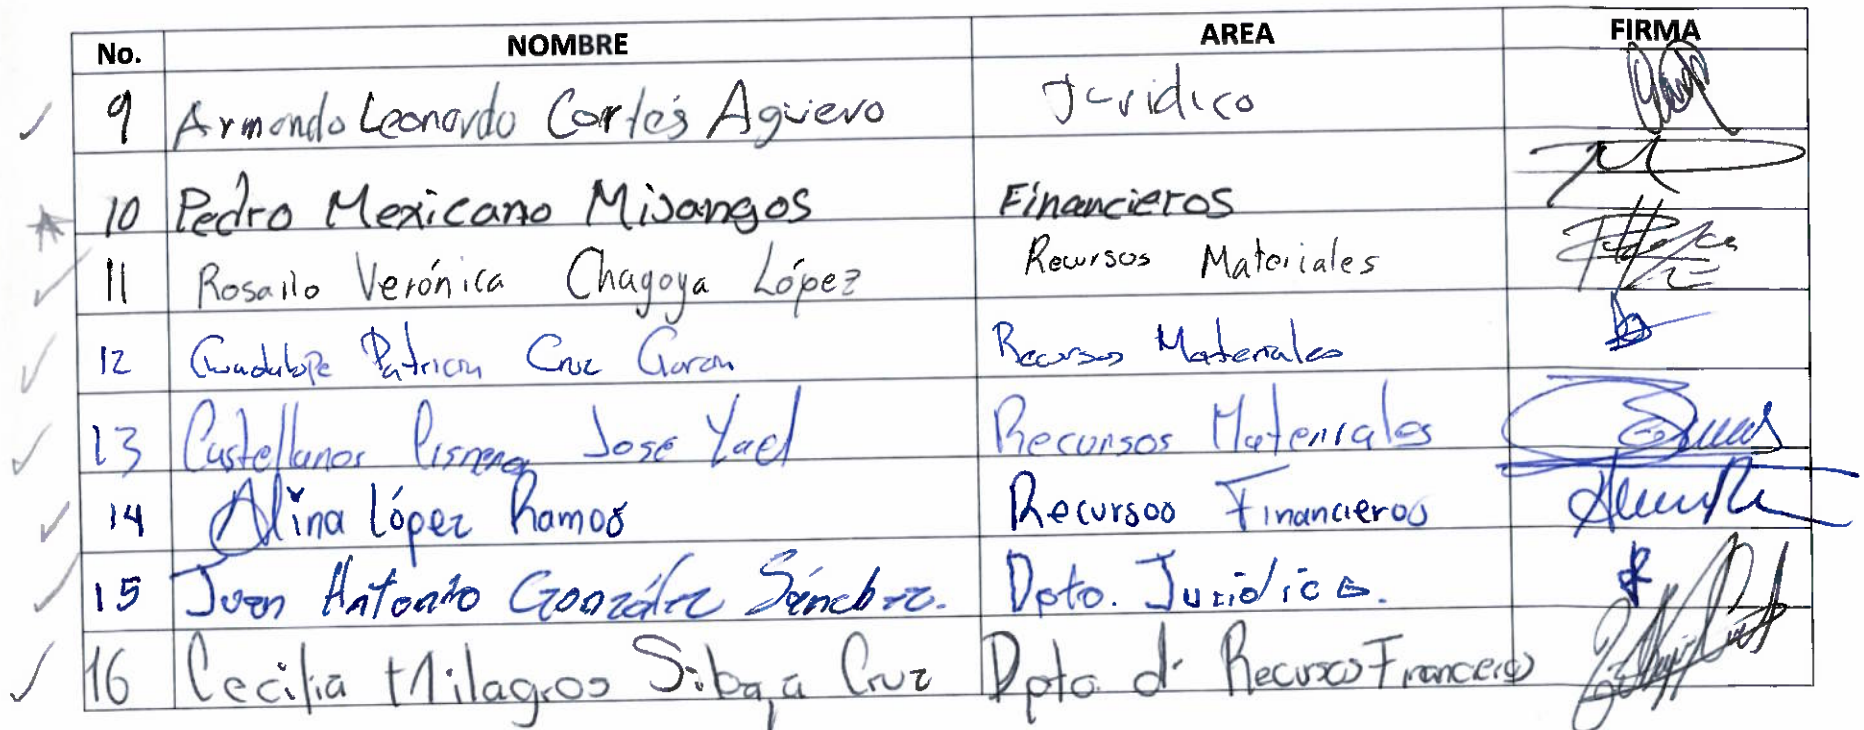 No. NOMBRE AREA FIRMA
9 Armando Leonardo Cortés Agüero Jurídico
10 Pedro Mexicano Mijangos Financieros
11 Rosario Verónica Chagoya López Recursos Materiales
12 Guadalupe Patricia Cruz Recursos Materiales
13 Castellanos Cisneros José Yael Recursos Materiales
14 Alina López Ramos Recursos Financieros
15 Juan Antonio González Sánchez. Dpto. Jurídico.
16 Cecilia Milagros Sibaja Cruz Dpto d' Recursos Financieros